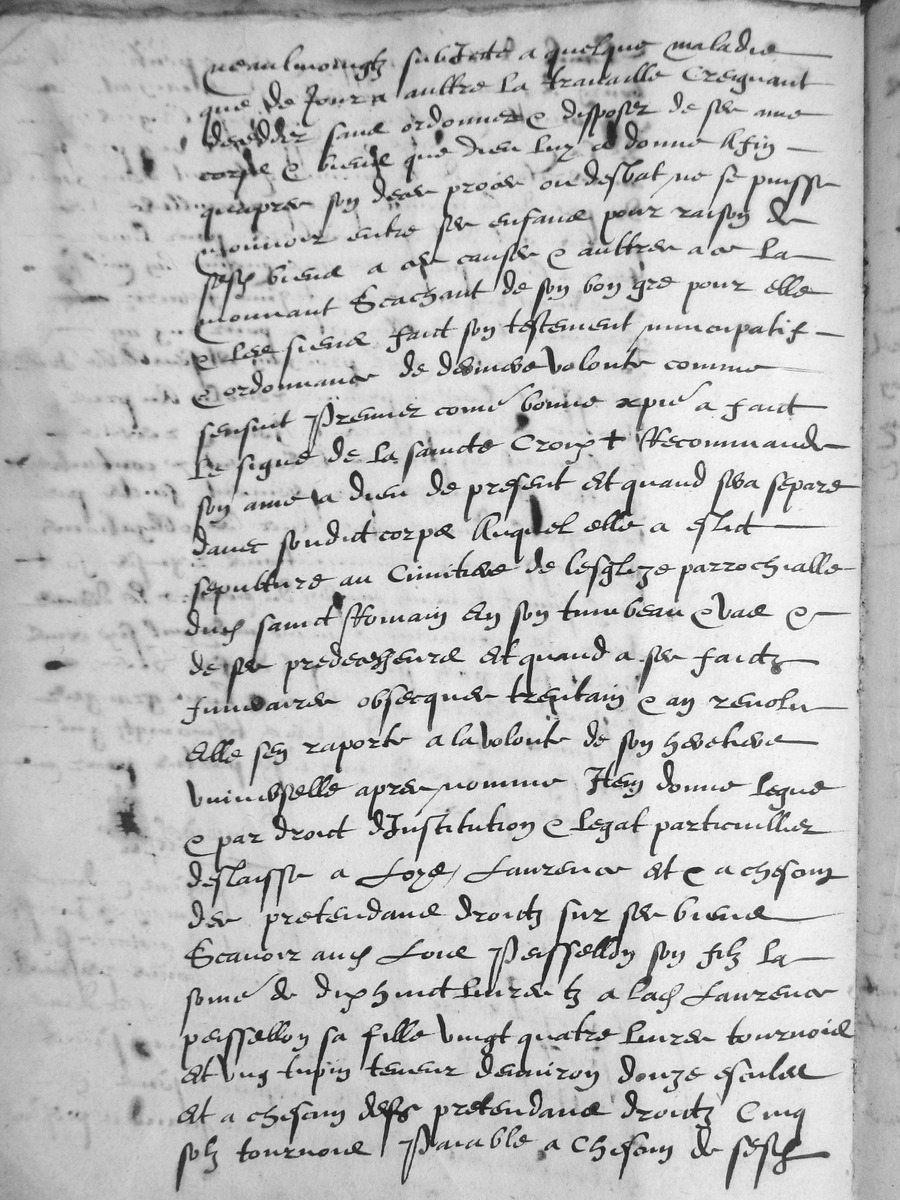 neaulmoingtz subJecte a quelque maladie
que de Jour a aultre la travaille Creignant
deceder sans ordonner & disposer de ses ame
corps & biens que dieu luy a donne Afin
quapres son deces proces ou desbat ne se puisse
mouvoir entre ses enfans pour raison de
sesd biens a ces causes & aultres a ce la
mouvant Scachant de son bon gre pour elle
& les siens faict son testement nuncupatif
& ordonnance de derniere volonte comme
sensuit Premier come bonne xpne a faict
le signe de la saincte Croix + Recommande
son ame a dieu de present Et quand sera separe
davec sondict corps Auquel elle a eslict
sepulture au Cimitiere de lesglize parrochialle
dud sainct Romain En son tumbeau & vas &
de ses predecesseurs Et quand a ses faictz
funeraires obsecques trentain & an revolu
Elle sen raporte a la volonte de son heretiere
universelle apres nommee Item donne legue
& par droict dInstitution & legat particullier
deslaisse a Loys, Laurence Et & a chescung
des pretendans droictz sur ses biens
Scavoir aud Loys Peyssellon son filz la
some de dix huict livres tz a lad Laurence
peyssellon sa fille vingt quatre livres tournois
Et ung tupin teneur denviron douze escuelles
Et a chescung desds pretendans droictz Cinq
solz tournois Paiable a Chescung de sesd